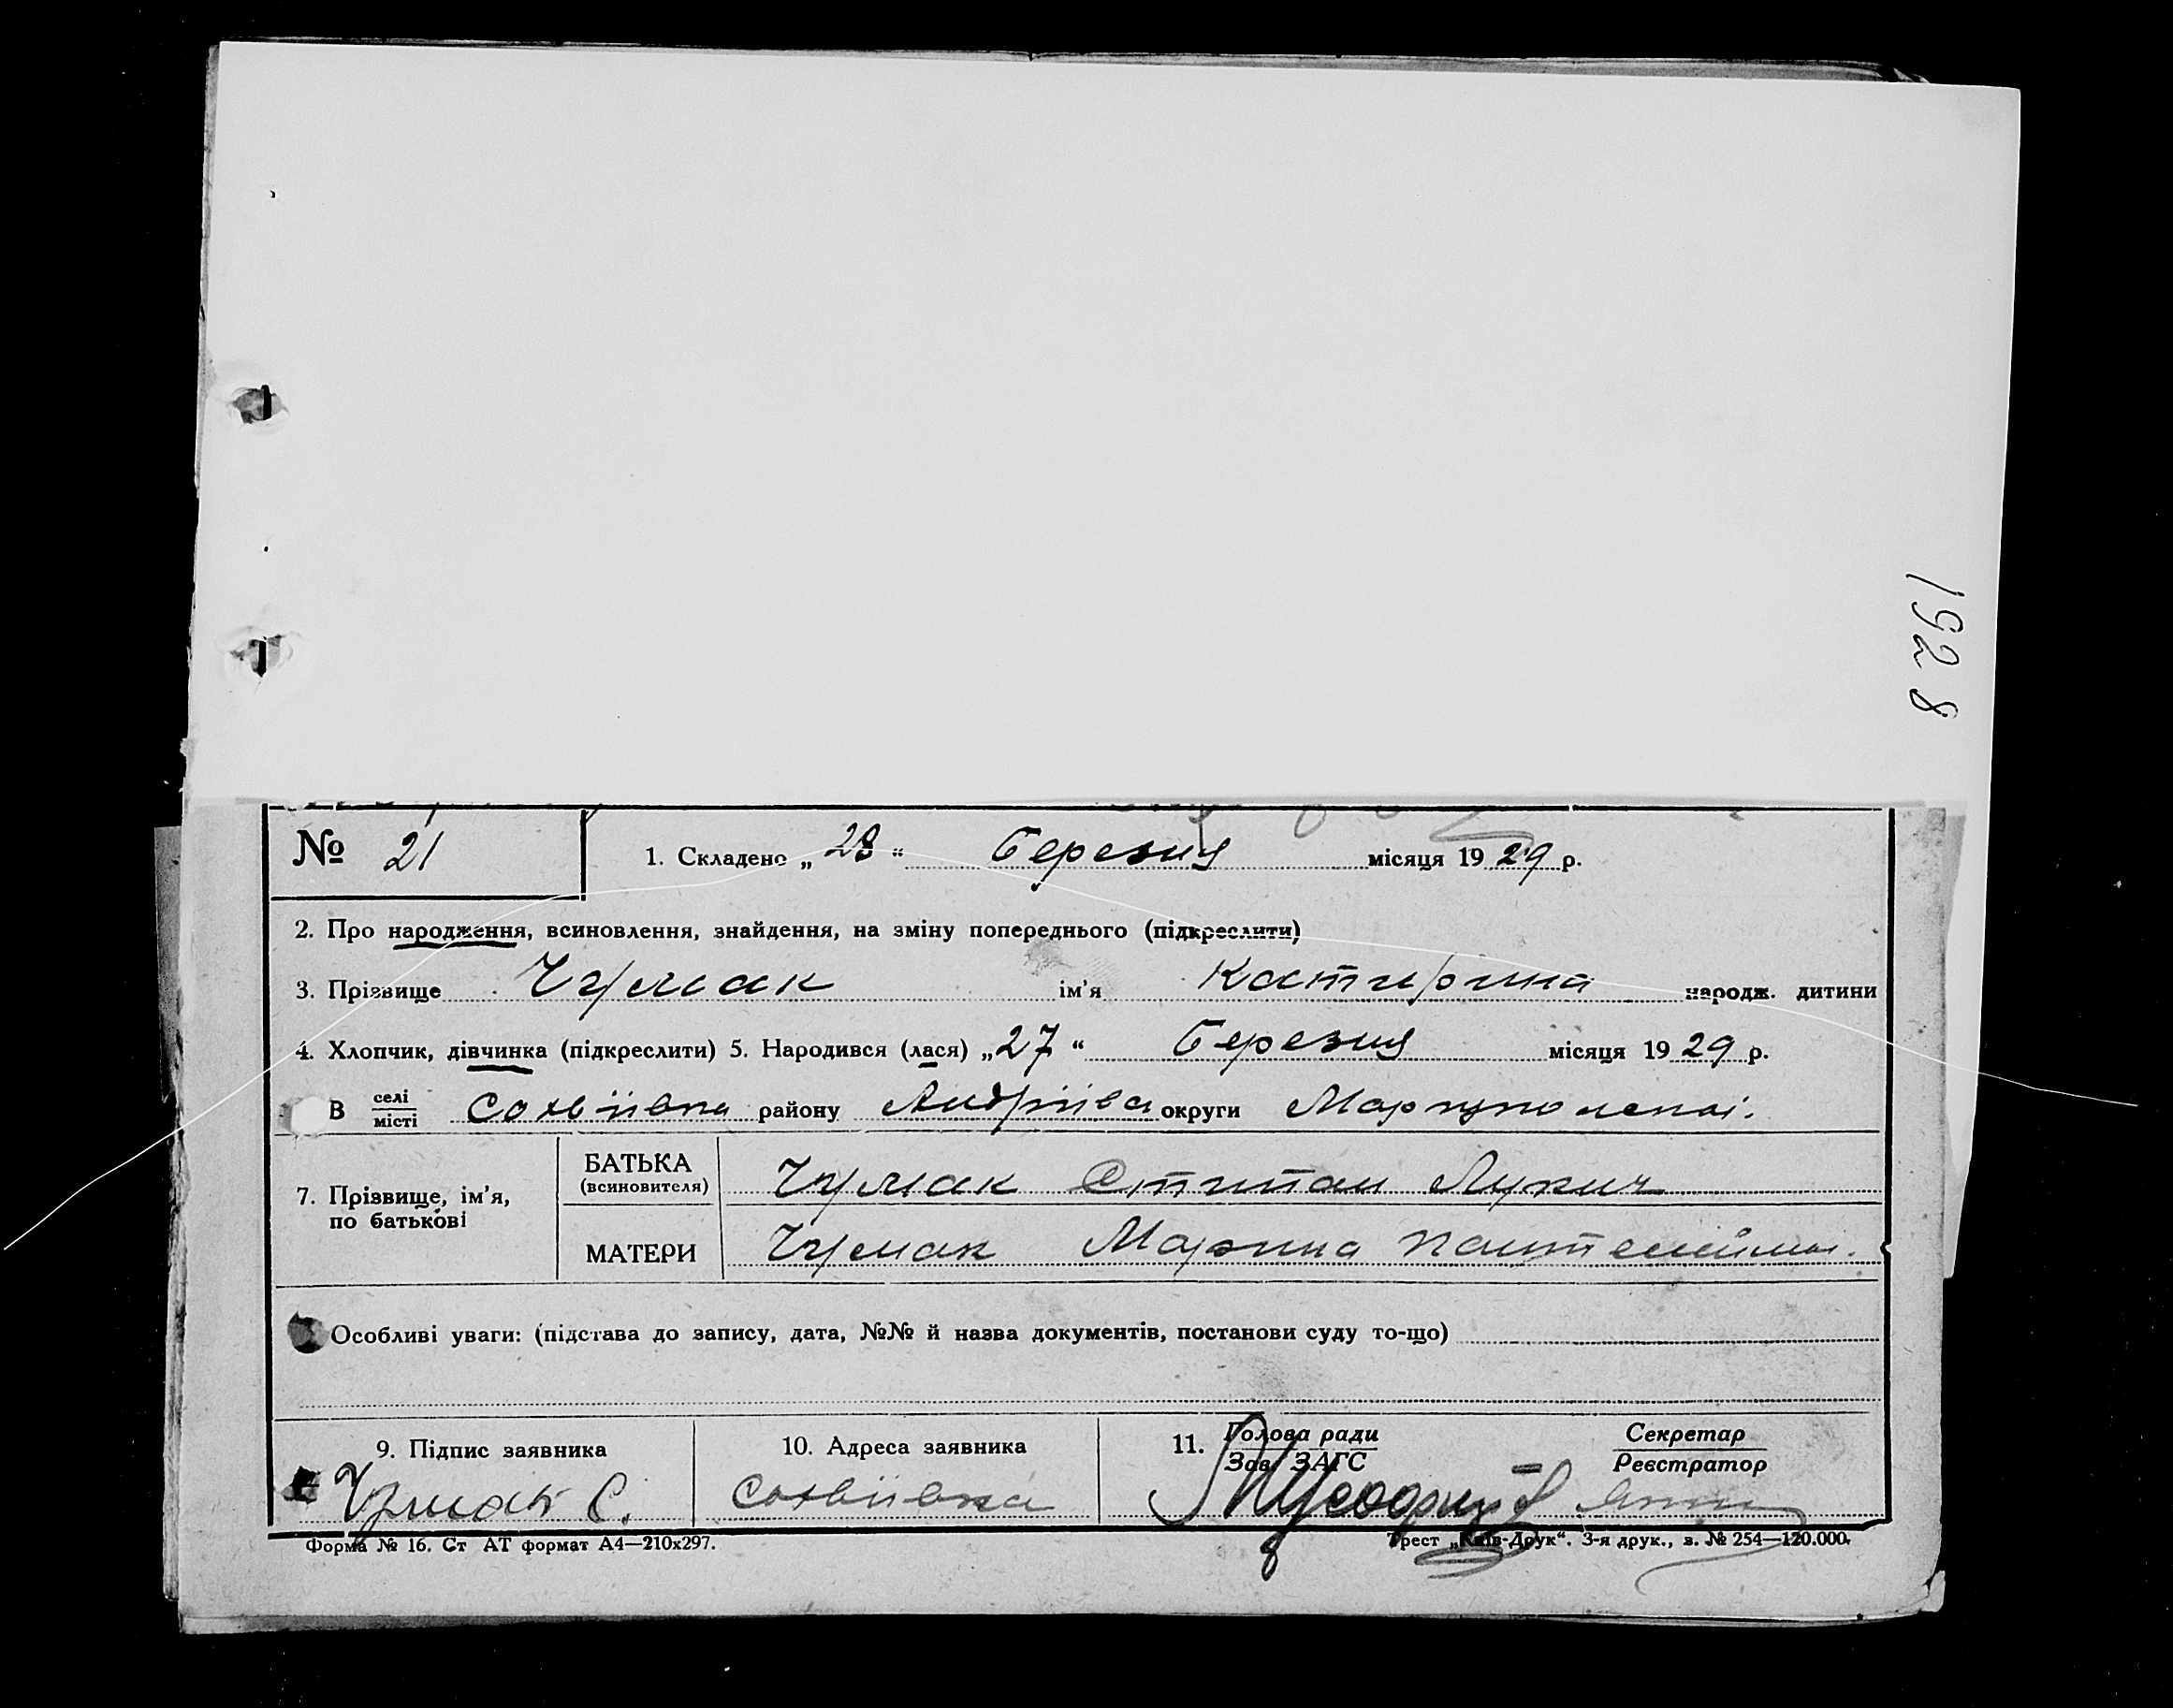 1928
№ 21
1. Складено „ 28 “ Березня місяця 1929 р.
2. Про народження, всиновлення, знайдення, на зміну попереднього (підкреслити)
3. Прізвище Чумак ім’я Катирина народж. дитини
4. Хлопчик, дівчинка (підкреслити) 5. Народився (лася) „27“ Березня місяця 1929 р.
В селі/місті Сохвіївка району Андріїва округи Маріупольскої.
7. Прізвище, ім’я, по батькові
БАТЬКА (всиновителя) Чумак Стипан Лукич
МАТЕРИ Чумак Марина
Особливі уваги: (підстава до запису, дата, №№ й назва документів, постанови суду то-що)
9. Підпис заявника
Чумак С.
10. Адреса заявника
Сохвіївка
11. Голова ради
Зав. ЗАГС
Секретар
Реєстратор
Форма № 16. Ст АТ формат А4—210х297.
Трест „Київ-Друк“. 3-я друк., з. № 254—120.000.